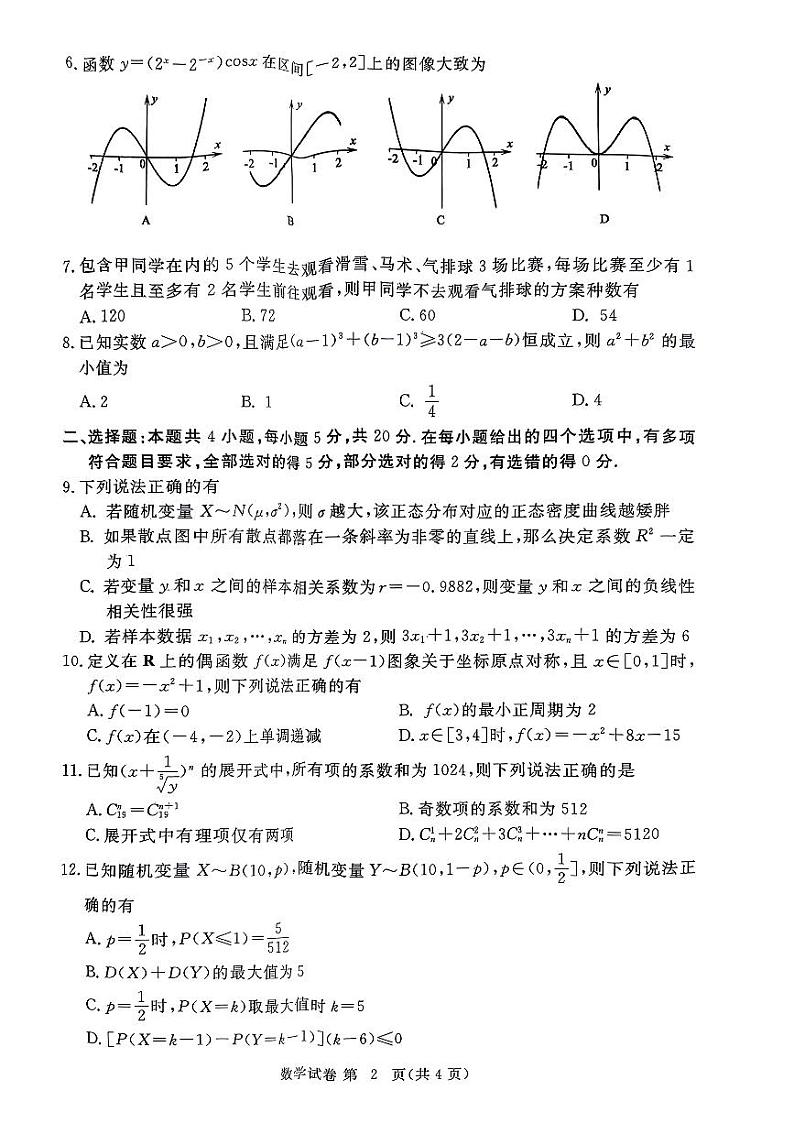 6. 函数 y=(2ˣ-2⁻ˣ)cosx 在区间[-2,2]上的图像大致为
y y y y
x x x x
-2 -1 0 1 2 -2 -1 0 1 2 -2 -1 0 1 2 -2 -1 0 1 2
A B C D
7. 包含甲同学在内的 5 个学生去观看滑雪、马术、气排球 3 场比赛,每场比赛至少有 1
名学生且至多有 2 名学生前往观看,则甲同学不去观看气排球的方案种数有
A. 120 B. 72 C. 60 D. 54
8. 已知实数 a>0,b>0,且满足(a-1)³+(b-1)³≥3(2-a-b)恒成立,则 a²+b² 的最
小值为
A. 2 B. 1 C. 1/4 D. 4
二、选择题:本题共 4 小题,每小题 5 分,共 20 分. 在每小题给出的四个选项中,有多项
符合题目要求,全部选对的得 5 分,部分选对的得 2 分,有选错的得 0 分.
9. 下列说法正确的有
A. 若随机变量 X~N(μ,σ²),则 σ 越大,该正态分布对应的正态密度曲线越矮胖
B. 如果散点图中所有散点都落在一条斜率为非零的直线上,那么决定系数 R² 一定
为 1
C. 若变量 y 和 x 之间的样本相关系数为 r=-0.9882,则变量 y 和 x 之间的负线性
相关性很强
D. 若样本数据 x₁,x₂,…,xₙ 的方差为 2,则 3x₁+1,3x₂+1,…,3xₙ+1 的方差为 6
10. 定义在 R 上的偶函数 f(x)满足 f(x-1)图象关于坐标原点对称,且 x∈[0,1]时,
f(x)=-x²+1,则下列说法正确的有
A. f(-1)=0 B. f(x)的最小正周期为 2
C. f(x)在(-4,-2)上单调递减 D. x∈[3,4]时,f(x)=-x²+8x-15
11. 已知(x+1/⁵√y)ⁿ 的展开式中,所有项的系数和为 1024,则下列说法正确的是
A. C₁₉ⁿ=C₁₉ⁿ⁺¹ B. 奇数项的系数和为 512
C. 展开式中有理项仅有两项 D. Cₙ¹+2Cₙ²+3Cₙ³+…+nCₙⁿ=5120
12. 已知随机变量 X~B(10,p),随机变量 Y~B(10,1-p),p∈(0,1/2],则下列说法正
确的有
A. p=1/2时,P(X≤1)=5/512
B. D(X)+D(Y)的最大值为 5
C. p=1/2时,P(X=k)取最大值时 k=5
D. [P(X=k-1)-P(Y=k-1)](k-6)≤0
数学试卷 第 2 页(共 4 页)